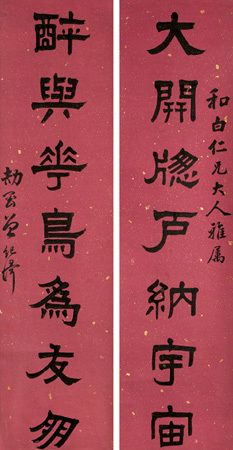 和白仁兄大人雅屬
大開牕戶納宇宙
醉與花鳥爲友朋
劼剛曾紀澤